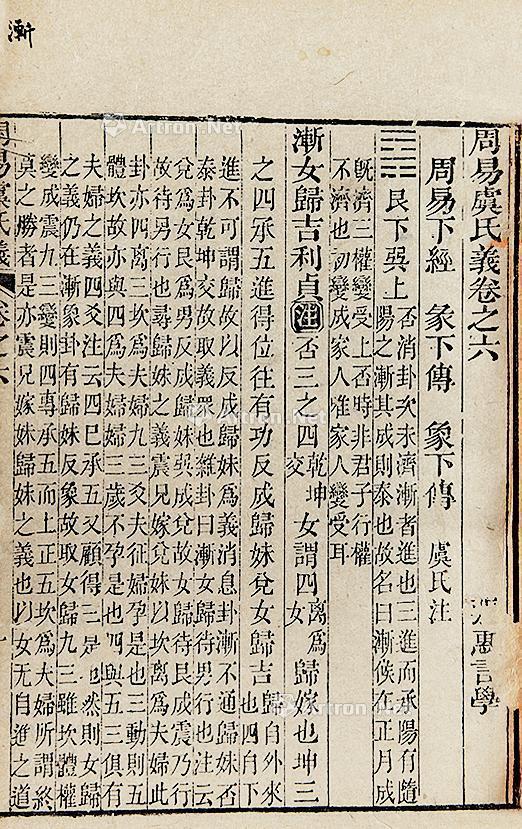 漸
周易虞氏義卷之六
周易下經　彖下傳　象下傳　虞氏注
惠言學
䷴艮下巽上
否消卦次未濟漸者進也三進而承陽有隨
陽之漸其成則泰也故名曰漸候在正月成
旣濟三權變受上否時非君子行權
不濟也初變成家人惟家人變受耳
漸女歸吉利貞注否三之四乾坤交女謂四離爲女歸嫁也坤三
之四承五進得位往有功反成歸妹兌女歸吉歸自外來也四自下
進不可謂歸故以反成歸妹爲義消息卦漸不通歸妹否
泰卦乾坤交故取義衆也雜卦曰漸女歸待男行也注云
兌爲女艮爲男反成歸妹巽成兌故女歸待艮成震乃行
故待男行也尋歸妹之義震兄嫁兌妹以坎離爲夫婦此
卦亦四離三坎爲夫婦九三爻夫征婦孕是也三動則五
體坎故亦與四爲夫婦三歲不孕是也四與五三俱有
夫婦之義四爻注云四已承五又顧得三是也然則女歸
之義仍在漸象卦有歸妹反象故取女歸九三雖坎體權
變成震九三變則四專承五而上正五坎爲夫婦所謂終
莫之勝者是亦震兄嫁妹歸妹之義也以女无自進之道
周易虞氏義　卷之六
Artron.Net